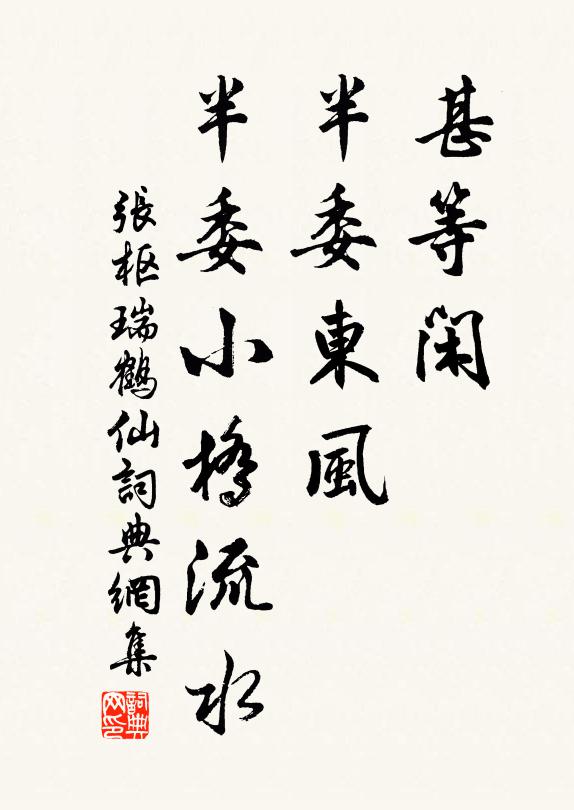 甚等閑
半委東風
半委小橋流水
張枢瑞鶴仙詞典網集
詞典網印